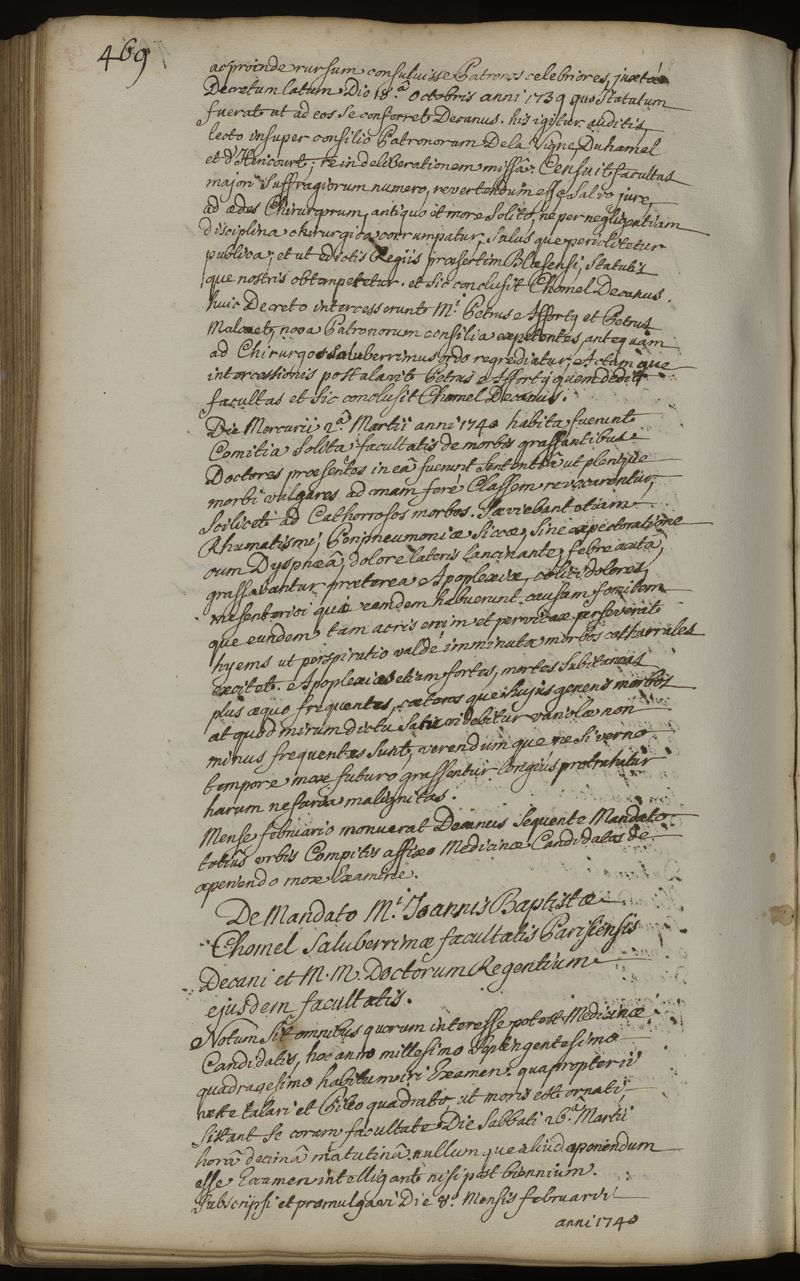 469
ac proinde rursum consuluisse Patronos celebriores, juxta
Decretum latum Die 18.ª Octobris anni 1739 quo Statutum
fuerat ut ad eos se conferret Decanus. his igitur auditis,
lecto insuper consilio Patronorum De la Vigne, Duhamel
et d'Hericourt; re in deliberationem missâ: Censuit facultas
majori Suffragiorum numero, revertendum esse Salvo jure,
ad ædes Chirurgorum, antiquo et more Solito, ne per negligentiam
disciplina chirurgica corrumpatur, Salus que periclitetur
publica; et ut edictis Regiis præsertim Blesensi, Statutis
que nostris obtemperetur. et Sic conclusit Chomel Decanus.
huic Decreto intercesserunt M.i Petrus Afforty et Petrus
Malouet, nova Patronorum consilia expetentes, antequam
ad Chirurgos Saluberrimus ordo regrediatur, Actum que
intercessionis postulavit Petrus Afforty quem dedit
facultas et Sic conclusit Chomel Decanus.
Die Mercurii 2.ª Martii anni 1740 habita fuerunt
Comitia Solita facultatis de morbis grassantibus
Doctores præsentes in eâ fuerunt Sententiâ ut plerique
morbi vulgares ad unam ferè Classem revocarentur,
Scilicet ad Catharrosos morbos. Sæviebant etiam
Rhumatismi, Peripneumoniæ Siccæ, Sine expectoratione
cum Dyspnæâ, dolore lateris lancinante, febre acutâ,
grassabantur præterea Apoplexiæ, colici dolores,
mesenterici qui eandem habuerunt causam fomitem
que eundem, tam acris enim et pervicax perseveravit
hyems ut perspiratio valdè imminuta morbos catharrales
excitet. Apoplexias etiam fortes, mortes Subitaneas
plus æquo frequentes, cæteros que hujus generis morbos
at quod mirum dictu Satis videbitur variolæ non
minus frequentes Sunt, verendum que ne Si verno
tempore mox futuro grassentur longius protrahatur
harum nefaria malignitas.
Mense februario monuerat Decanus Sequente Mandato
totius urbis Compitis affixo Medicinæ Candidatos de
aperiendo mox Examine.
De Mandato M.i Joannis Baptistæ
Chomel Saluberrimæ facultatis Parisiensis
Decani et M. M. Doctorum Regentium
ejusdem facultatis.
Notum Sit omnibus quorum interesse potest Medicinæ
Candidatis, hoc anno millesimo Septingentesimo
quadragesimo habitum iri Examen. quapropter ii
veste talari et Pileo quadrato ut moris est ornati,
Sistant Se coram facultate Die Sabbati 26.ª Martii
horâ decimâ matutinâ, nullum que aliud aperiendum
esse Examen intelligant nisi post biennium.
Subscripsi et promulgavi Die 8.ª Mensis februarii
anni 1740